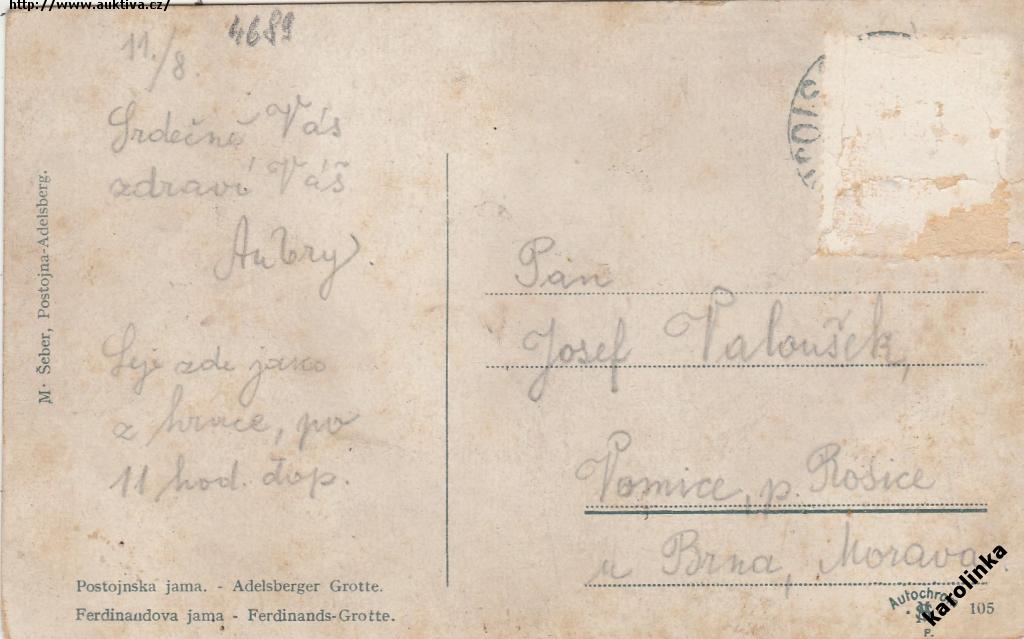 http://www.auktiva.cz/
4689
11./8.
Srdečně Vás
zdraví Váš
Aubry.
Leje zde jako
z hrnce, po
11 hod. dop.
M. Šeber, Postojna-Adelsberg.
Pan
Josef Valoušek,
Vomice, p. Rosice
u Brna, Morava
Postojnska jama. - Adelsberger Grotte.
Ferdinandova jama - Ferdinands-Grotte.
105
P.
karolinka